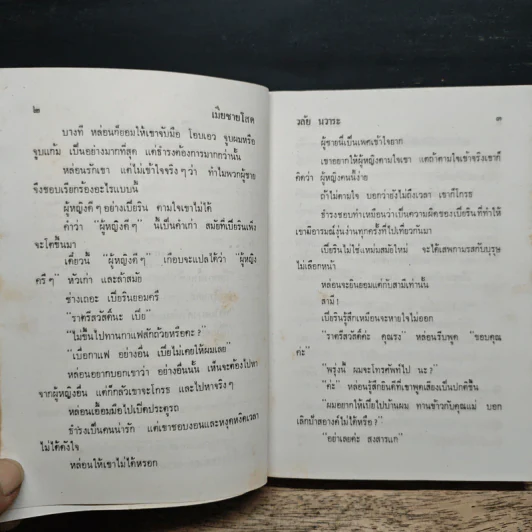 ๒ เมียชายโสด
บางที หล่อนก็ยอมให้เขาจับมือ โอบเอว จูบผมหรือ
จูบแก้ม เป็นอย่างมากที่สุด แต่ธำรงต้องการมากกว่านั้น
หล่อนรักเขา แต่ไม่เข้าใจจริง ๆ ว่า ทำไมพวกผู้ชาย
จึงชอบเรียกร้องอะไรแบบนี้
ผู้หญิงดี ๆ อย่างเบียรีน ตามใจเขาไม่ได้
คำว่า "ผู้หญิงดี ๆ" นี้เป็นคำเก่า สมัยที่เบียรีนเพิ่ง
จะโตขึ้นมา
เดี๋ยวนี้ "ผู้หญิงดี ๆ" เกือบจะแปลได้ว่า "ผู้หญิง
ครึ ๆ" หัวเก่า และล้าสมัย
ช่างเถอะ เบียรีนยอมครึ
"ราตรีสวัสดิ์นะ เบีย"
"ไม่ขึ้นไปทานกาแฟสักถ้วยหรือคะ?"
"เบียกาแฟ อย่างอื่น เบียไม่เคยให้ผมเลย"
หล่อนอยากบอกเขาว่า อย่างอื่นนั้น เห็นจะต้องไปหา
จากผู้หญิงอื่น แต่ก็กลัวเขาจะโกรธ และไปหาจริง ๆ
หล่อนเอื้อมมือไปเปิดประตูรถ
ธำรงเป็นคนน่ารัก แต่เขาชอบงอนและหงุดหงิดเวลา
ไม่ได้ดังใจ
หล่อนให้เขาไม่ได้หรอก
วลัย นวาระ ๓
ผู้ชายนี่เป็นเพศเข้าใจยาก
เขาอยากให้ผู้หญิงตามใจเขา แต่ถ้าตามใจเข้าจริงเขาก็
คิดว่า ผู้หญิงคนนี้ง่าย
ถ้าไม่ตามใจ บอกว่ายังไม่ถึงเวลา เขาก็โกรธ
ธำรงชอบทำเหมือนว่าเป็นความผิดของเบียรีน ที่ทำให้
เขามีอารมณ์งุ่นง่านทุกครั้งที่ไปเที่ยวกันมา
เบียรีนไม่ใช่แหม่มสมัยใหม่ จะได้เสพกามรสกับบุรุษ
ไม่เลือกหน้า
หล่อนจะยินยอมแต่กับสามีเท่านั้น
สามี!
เบียรีนรู้สึกเหมือนจะหายใจไม่ออก
"ราตรีสวัสดิ์ค่ะ คุณรง" หล่อนรีบพูด "ขอบคุณ
ค่ะ"
"พรุ่งนี้ ผมจะโทรศัพท์ไป นะ?"
"ค่ะ" หล่อนรู้สึกยินดีที่เขาพูดเสียงเป็นปกติขึ้น
"ผมอยากให้เบียไปบ้านผม ทานข้าวกับคุณแม่ บอก
เลิกป้าสอางค์ไม่ได้หรือ?"
"อย่าเลยค่ะ สงสารแก"